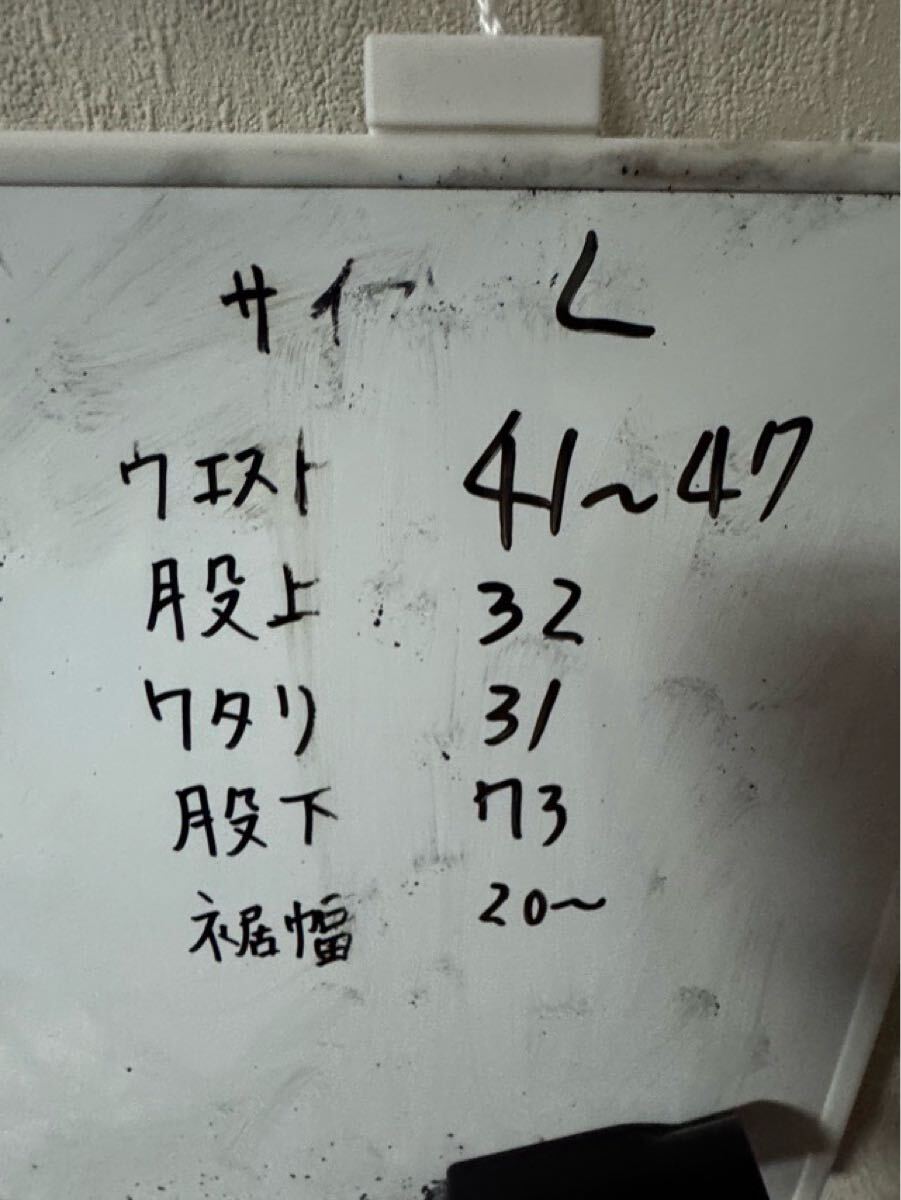 サイ L
ウエスト 41~47
股上 32
ワタリ 31
股下 73
裾幅 20~